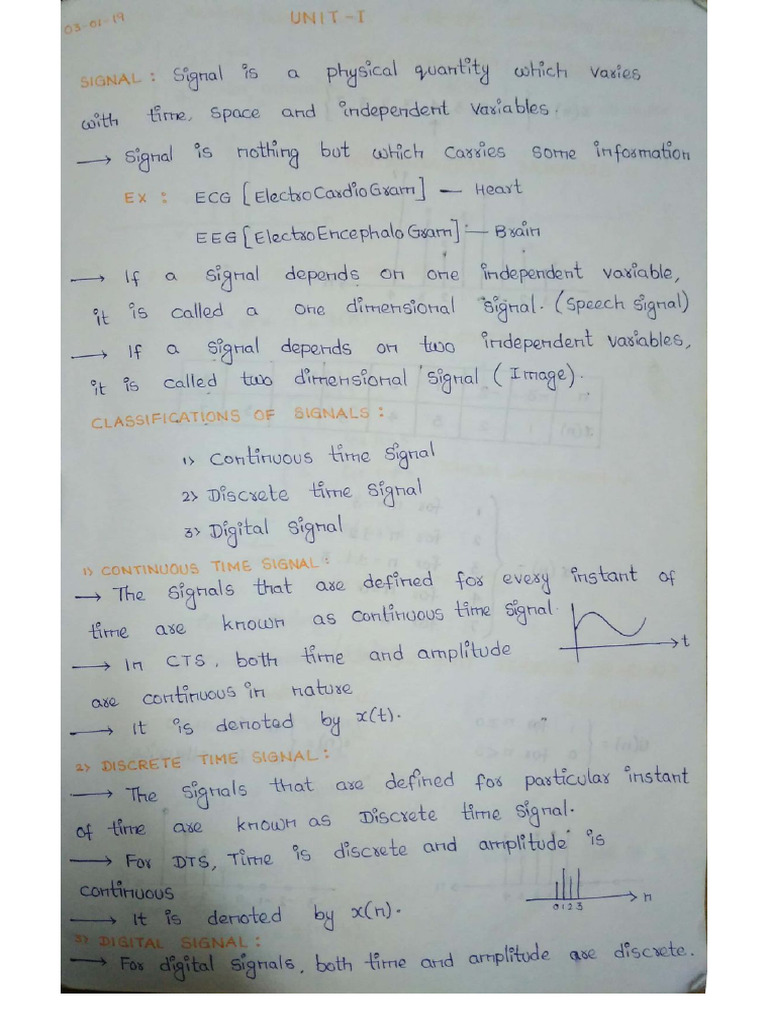 03-01-19
UNIT-I
SIGNAL: Signal is a physical quantity which varies
with time, space and independent variables.
→ Signal is nothing but which carries some information
EX: ECG [ElectroCardioGram] — Heart
EEG [ElectroEncephaloGram] — Brain
→ If a signal depends on one independent variable,
it is called a one dimensional signal. (Speech signal)
→ If a signal depends on two independent variables,
it is called two dimensional signal (Image).
CLASSIFICATIONS OF SIGNALS:
1) Continuous time signal
2) Discrete time signal
3) Digital signal
1) CONTINUOUS TIME SIGNAL:
→ The signals that are defined for every instant of
time are known as continuous time signal.
→ In CTS, both time and amplitude
t
are continuous in nature
→ It is denoted by x(t).
2) DISCRETE TIME SIGNAL:
→ The signals that are defined for particular instant
of time are known as Discrete time signal.
→ For DTS, Time is discrete and amplitude is
continuous
n
0 1 2 3
→ It is denoted by x(n).
3) DIGITAL SIGNAL:
→ For digital signals, both time and amplitude are discrete.